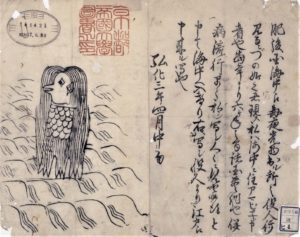 肥後国海中え毎夜光物出ル所之役人行
見るニづの如く者現ス私ハ海中ニ住アマビヱト申
者也當年より六ヶ年之間諸国豊作也併
病流行早々私ヲ写シ人々ニ見セ候得と
申て海中へ入けり右ハ写シ役人より江戸え
申来ル写也
弘化三年四月中旬
京都
帝国大学
図書之印